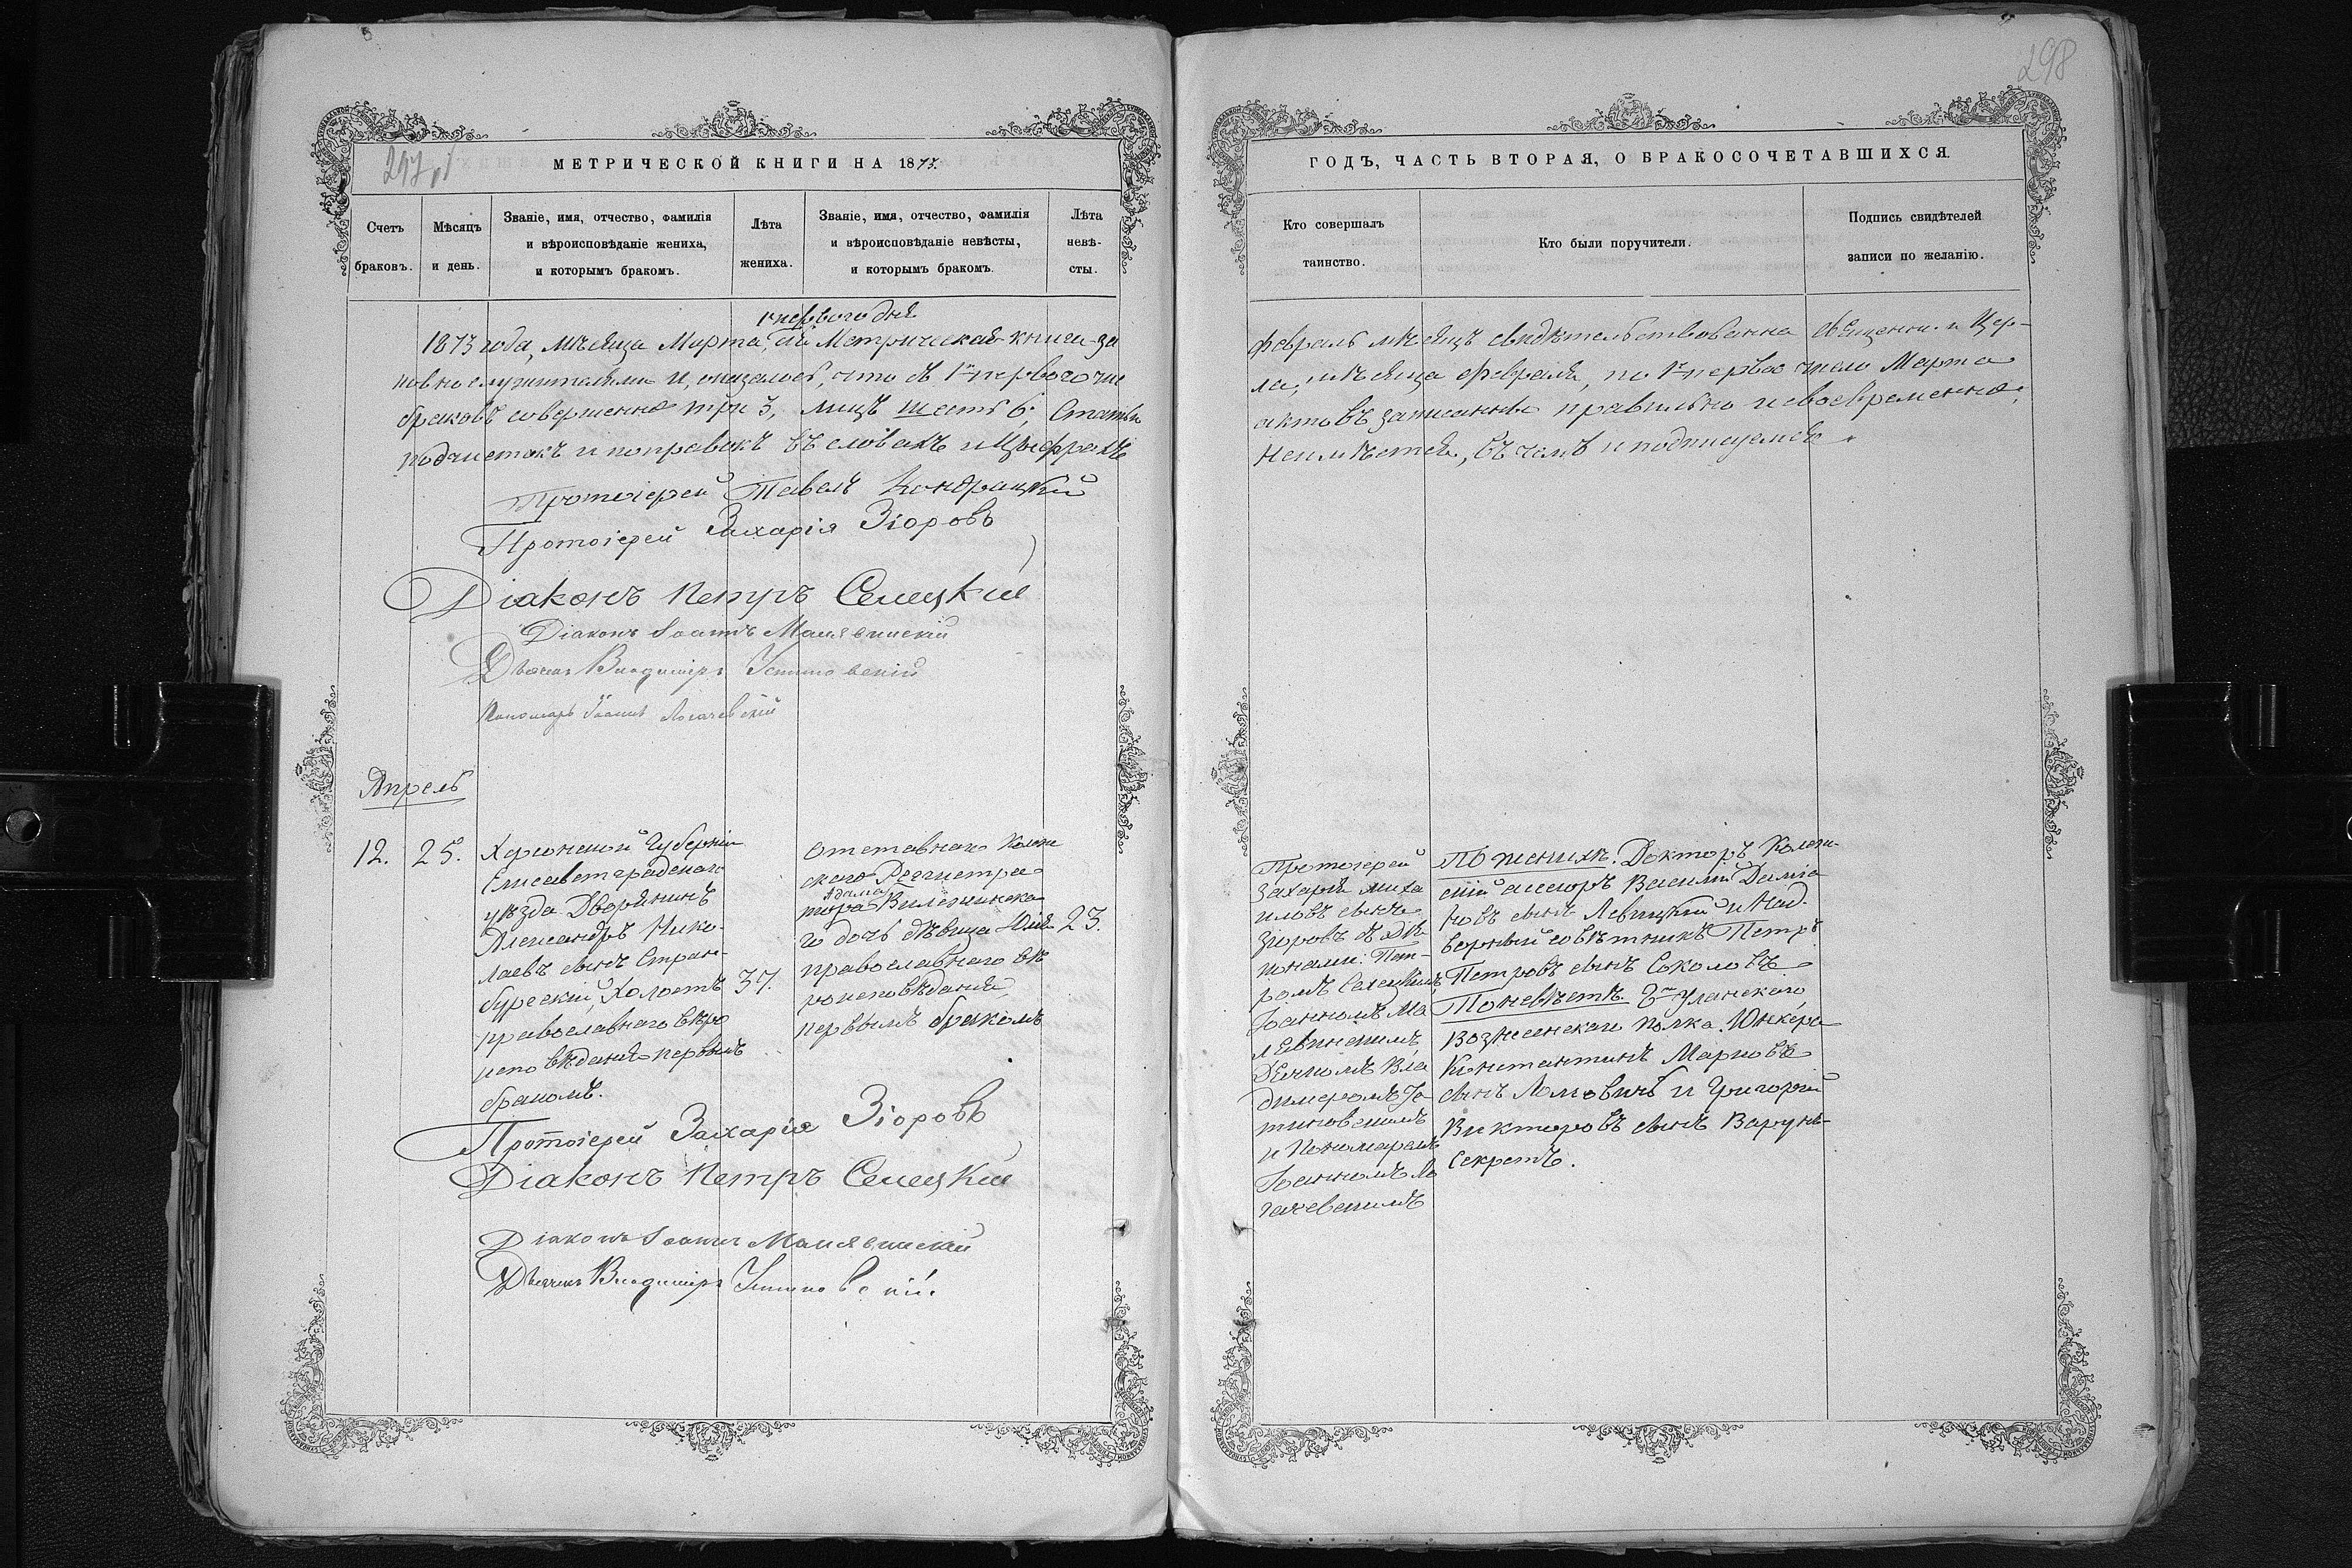 298
297 об
МЕТРИЧЕСКОЙ КНИГИ НА 1873.
Счетъ браковъ.
Мѣсяцъ и день.
Званіе, имя, отчество, фамилія
и вѣроисповѣданіе жениха,
и которымъ бракомъ.
Лѣта
жениха.
Званіе, имя, отчество, фамилія
и вѣроисповѣданіе невѣсты,
и которымъ бракомъ.
Лѣта
невѣ-
сты.
1 перваго дня
1873 года, мѣсяца Марта, сія Метрическая книги за
ковнослужителями и, оказалось, что съ 1го перваго чис
браковъ совершенно три 3, лицъ шесть 6; Статьи
подчистокъ и поправокъ въ словахъ и Цыфрахъ
Протоіерей Павелъ Кондрацкій
Протоіерей Захарія Зіоровъ
Діаконъ Петръ Селецкій
Діаконъ Іоаннъ Малявинскій
Дьячекъ Владиміръ Устиновскій
Пономарь Іоаннъ Логачевскій
Апрель
12. 25.
Херсонской Губерніи
Елисаветградскаго
уѣзда Дворянинъ
Александръ Нико-
лаевъ сынъ Стран-
бурскій, Холостъ
православнаго вѣро
исповѣданія первымъ
бракомъ.
37.
Отставнаго Колеж
скаго Регистра
Адама
тора Вилежинска
го дочь дѣвица Юлія
православнаго вѣ
роисповѣданія,
первымъ бракомъ
23.
Протоіерей Захарія Зіоровъ
Діаконъ Петръ Селецкій
Діаконъ Іоаннъ Малявинскій
Дьячекъ Владиміръ Устиновскій
ГОДЪ, ЧАСТЬ ВТОРАЯ, О БРАКОСОЧЕТАВШИХСЯ.
Кто совершалъ
таинство.
Кто были поручители.
Подпись свидѣтелей
записи по желанію.
Февраль мѣсяцъ свидѣтельствованна Священно. и Цер-
ла, мѣсяца Февраля, по 1е первое число Марта
актовъ записанны правильно и своевременно;
неимѣется, въ чемъ и подписуемся.
Протоіерей
Захарія Миха
иловъ сынъ
Зіоровъ съ Діа
конами: Пет-
ромъ Селецкимъ,
Іоанномъ Ма
лявинскимъ
Дьячкомъ Вла
димеромъ Ус
тиновскимъ
и Пономаремъ
Іоанномъ Ло
гачевскимъ
По женихѣ: Докторъ Колеж-
скій асесоръ Василій Даміа
новъ сынъ Левицкій и Над-
ворный совѣтникъ Петръ
Петровъ сынъ Соколовъ
По невѣстѣ: 3го Уланскаго
Вознесенскаго полка Юнкера
Константинъ Марковъ
сынъ Ломовинъ и Григорій
Викторовъ сынъ Варунъ-
Секретъ.